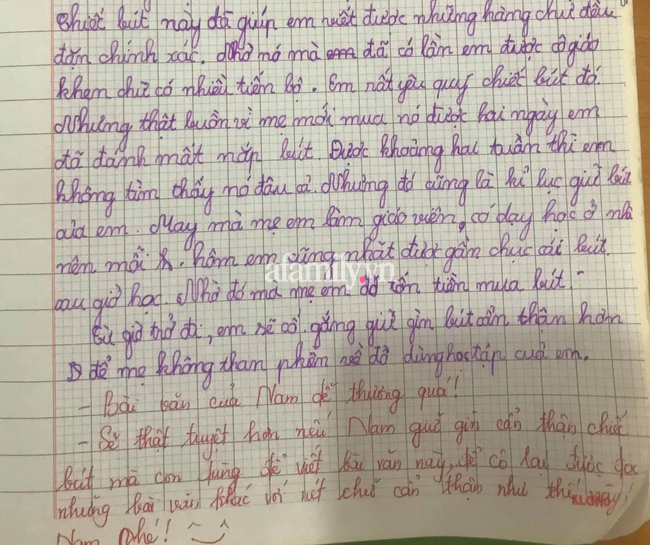 Chiếc bút này đã giúp em viết được những hàng chữ đều
đặn chính xác. Nhờ nó mà em đã có lần em được cô giáo
khen chữ có nhiều tiến bộ. Em rất yêu quý chiếc bút đó.
Nhưng thật buồn vì mẹ mới mua nó được hai ngày em
đã đánh mất nắp bút. Được khoảng hai tuần thì em
không tìm thấy nó đâu cả. Nhưng đó cũng là kỉ lục giữ bút
của em. May mà mẹ em làm giáo viên, có dạy học ở nhà
nên mỗi hôm em cũng nhặt được gần chục cái bút
afamily.vn
sau giờ học. Nhờ đó mà mẹ em đỡ tốn tiền mua bút.
Từ giờ trở đi, em sẽ cố gắng giữ gìn bút cẩn thận hơn
để mẹ không tham phiền về đồ dùng học tập của em.
- Bài văn của Nam dễ thương quá!
- Sẽ thật tuyệt hơn nếu Nam giữ gìn cẩn thận chiếc
bút mà con dùng để viết bài văn này, để cô lại được đọc
những bài văn khác với nét chữ cẩn thận như thế này!
Nam nhé!